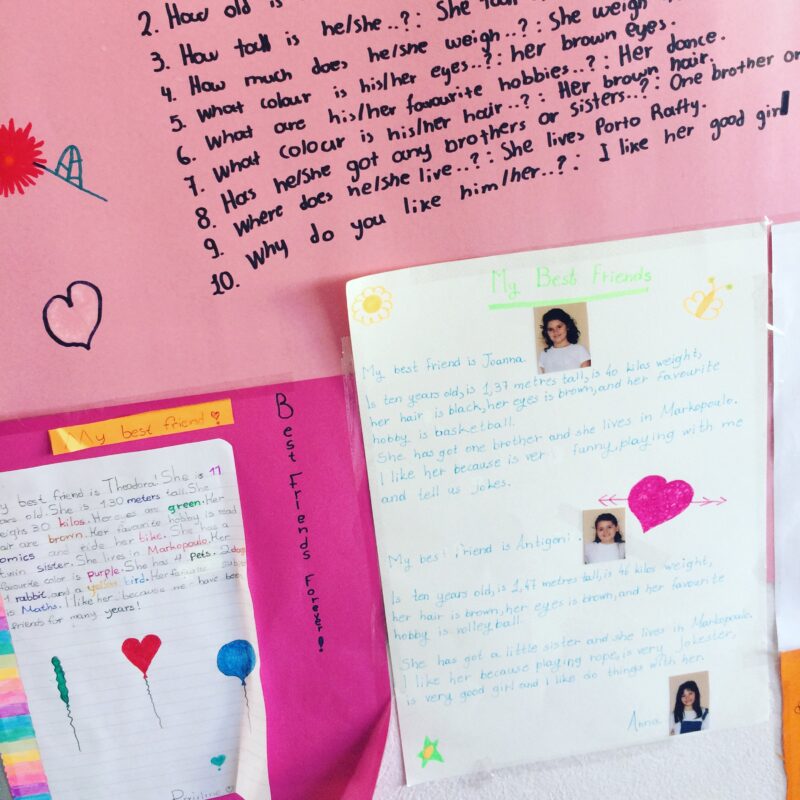 2. How old is
3. How tall is he/she..?: She tall
4. How much does he/she weigh..?: She weigh
5. What colour is his/her eyes..?: her brown eyes.
6. What are his/her favourite hobbies..?: Her dance.
7. What colour is his/her hair..?: Her brown hair.
8. Has he/she got any brothers or sisters..?: One brother or
9. Where does he/she live..?: She lives Porto Rafty.
10. Why do you like him/her..?: I like her good girl
My Best Friends
My best friend is Joanna.
Is ten years old, is 1,37 metres tall, is 40 kilos weight,
her hair is black, her eyes is brown, and her favourite
hobby is basketball.
She has got one brother and she lives in Markopoulo.
I like her because is very funny, playing with me
and tell us jokes.
My best friend is Antigoni.
Is ten years old, is 1,47 metres tall, is 46 kilos weight,
her hair is brown, her eyes is brown, and her favourite
hobby is volleyball.
She has got a little sister and she lives in Markopoulo.
I like her because playing rope, is very jokester,
is very good girl and I like do things with her.
Anna
Best Friends Forever!
My best friend!
My best friend is Theodora! She is 11
years old. She is 1.30 meters tall. She
weighs 30 kilos. Her eyes are green. Her
hair are brown. Her favourite hobby is read
comics and ride her bike. She has a
twin sister. She lives in Markopoulo. Her
favourite color is purple. She has 4 pets. 2 dogs
1 rabbit and a yellow bird. Her favourite
is Maths. I like her because we have been
friends for many years!